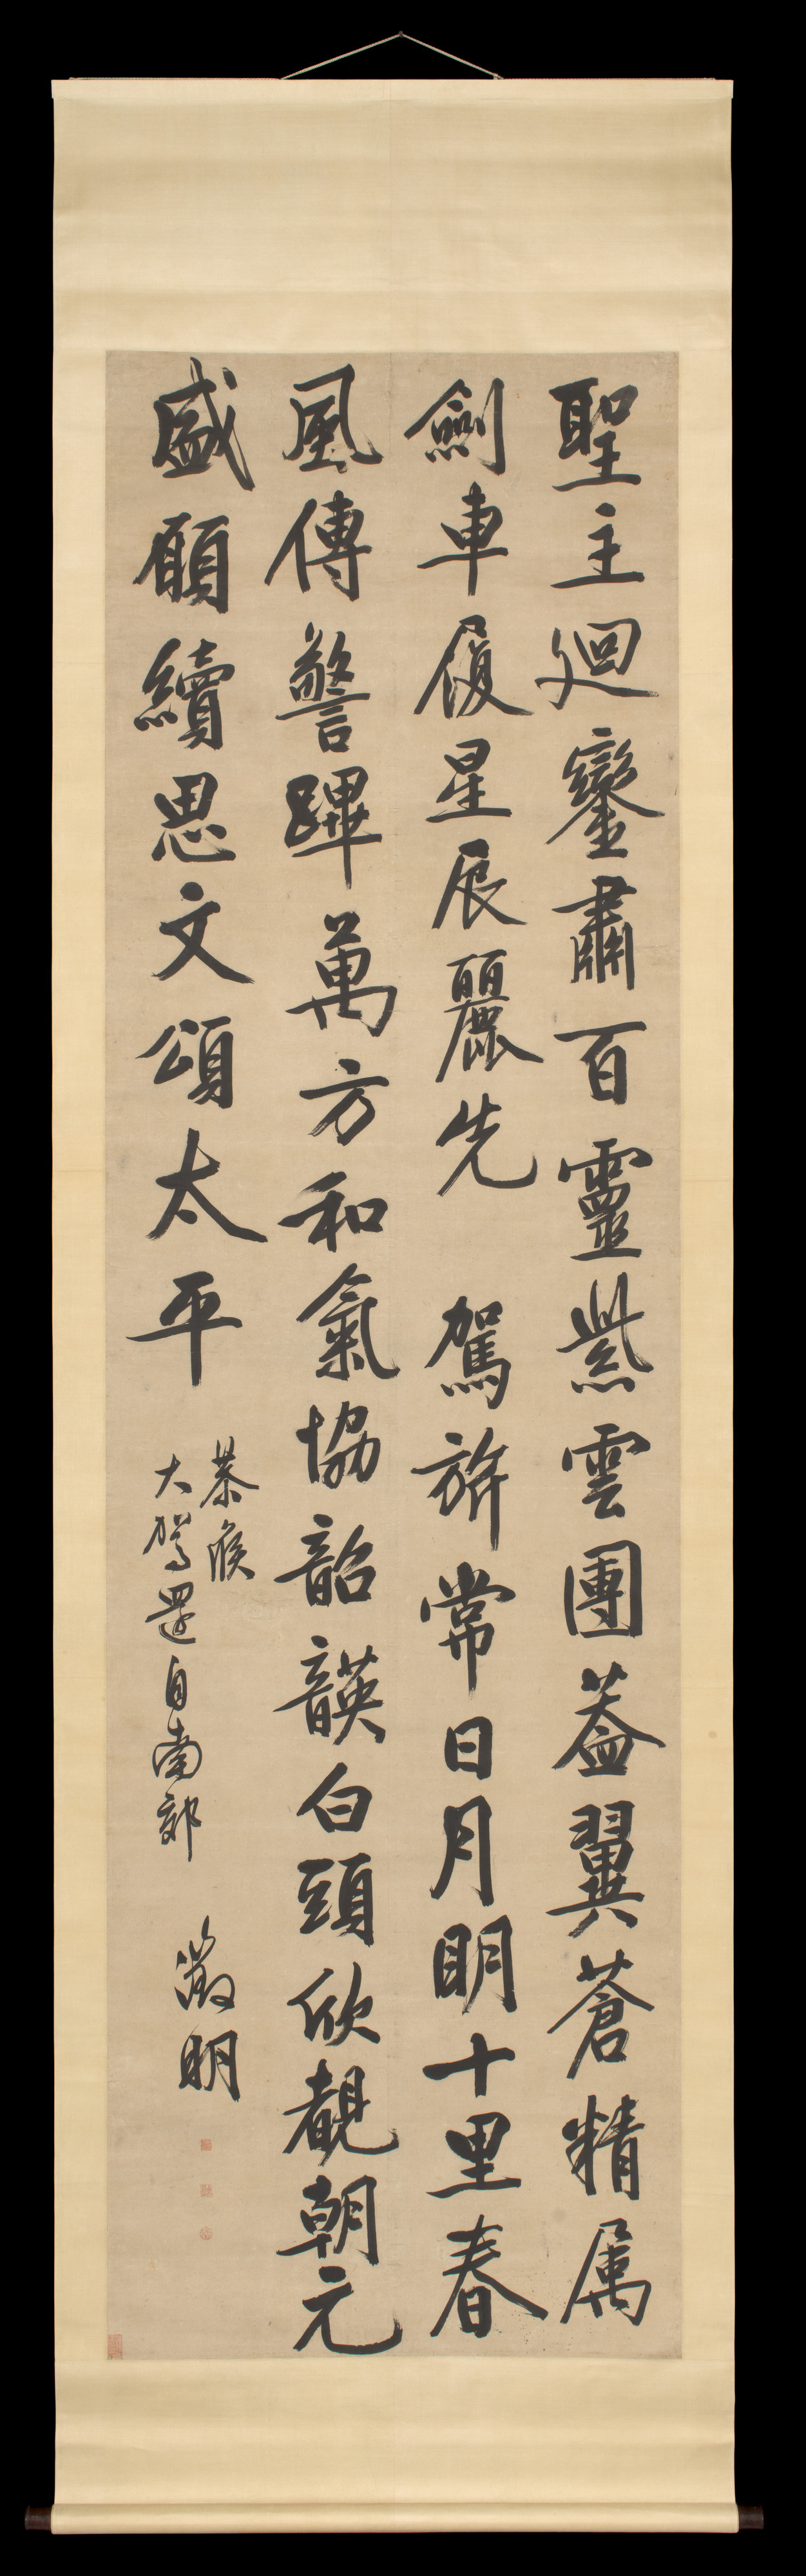 聖主廻鑾肅百靈紫雲團蓋翼蒼精属
劍車履星辰麗先駕旂常日月明十里春
風傳警蹕萬方和氣協韶韺白頭欣覩朝元
盛願續思文頌太平
恭候
大駕還自南郊
徵明